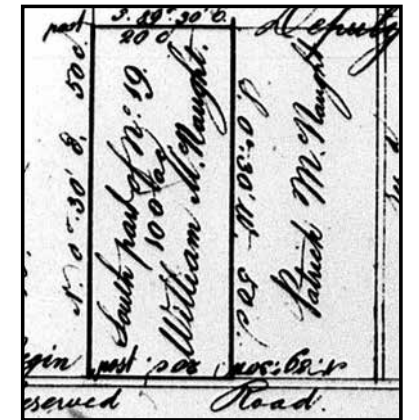 post S. 89° 30' E.
20 c
Deputy
N. 0° 30' E. 50 c.
South part of No. 19.
100 ac
William McNaught.
S. 0° 30' W. 50 c.
Patrick McNaught
post 20 c N. 89° 30' W
eserved Road.